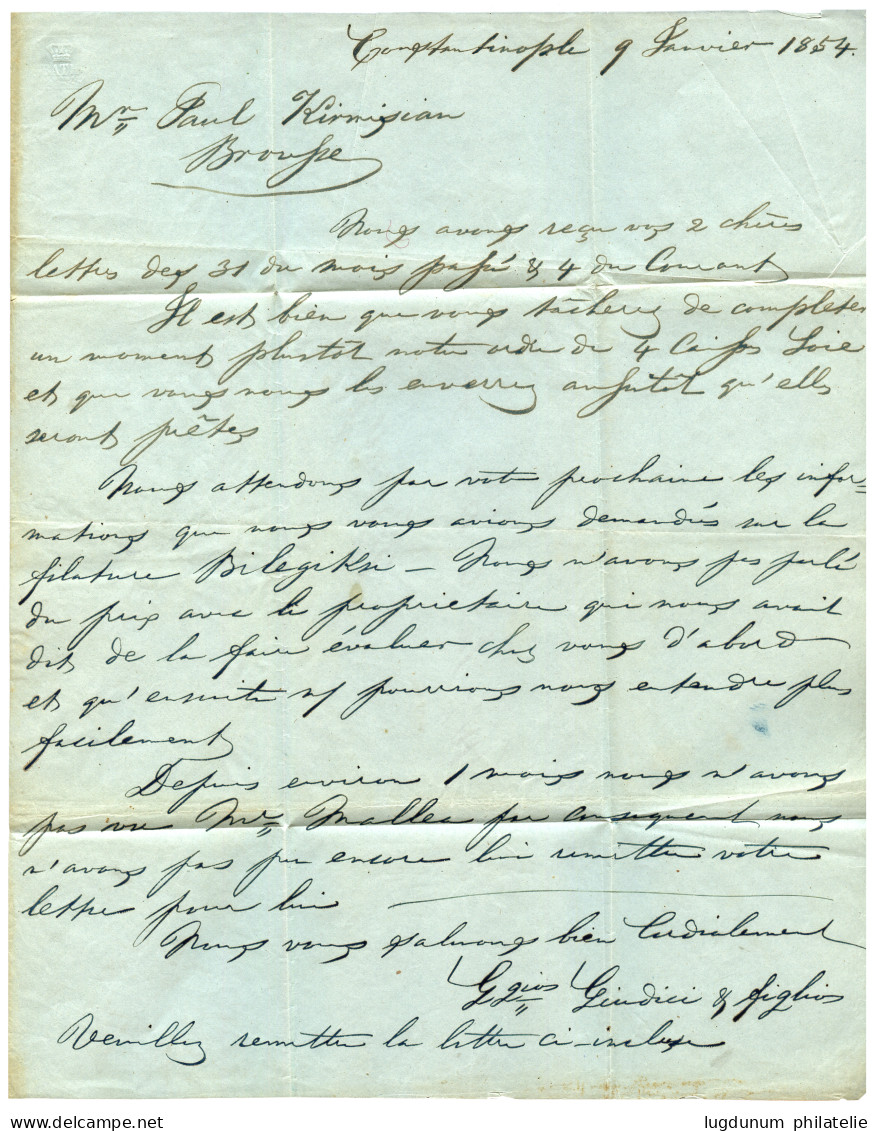 Constantinople 9 Janvier 1854.
Mr. Paul Kirmisian
Brousse
Nous avons reçu vos 2 chères
lettres des 31 du mois passé & 4 du Courant
Il est bien que vous tâcherez de completer
un moment plustôt notre ordre de 4 Caisses Soie
et que vous nous les enverrez aussitôt qu'elles
seront prêtes
Nous attendons par votre prochaine les infor=
mations que nous vous avions demandés sur la
filature Bilegiksi – Nous n'avons pas parlé
du prix avec le proprietaire qui nous avait
dit de la faire évaluer chez vous d'abord
et qu'ensuite n/ pourrions nous entendre plus
facilement
Depuis environ 1 mois nous n'avons
pas vu Mr. Mallea par consequent nous
n'avons pas pu encore lui remettre votre
lettre pour lui
Nous vous saluons bien Cordialement
Giudici & figlios
Veuillez remettre la lettre ci-incluse
lugdunum philatelie